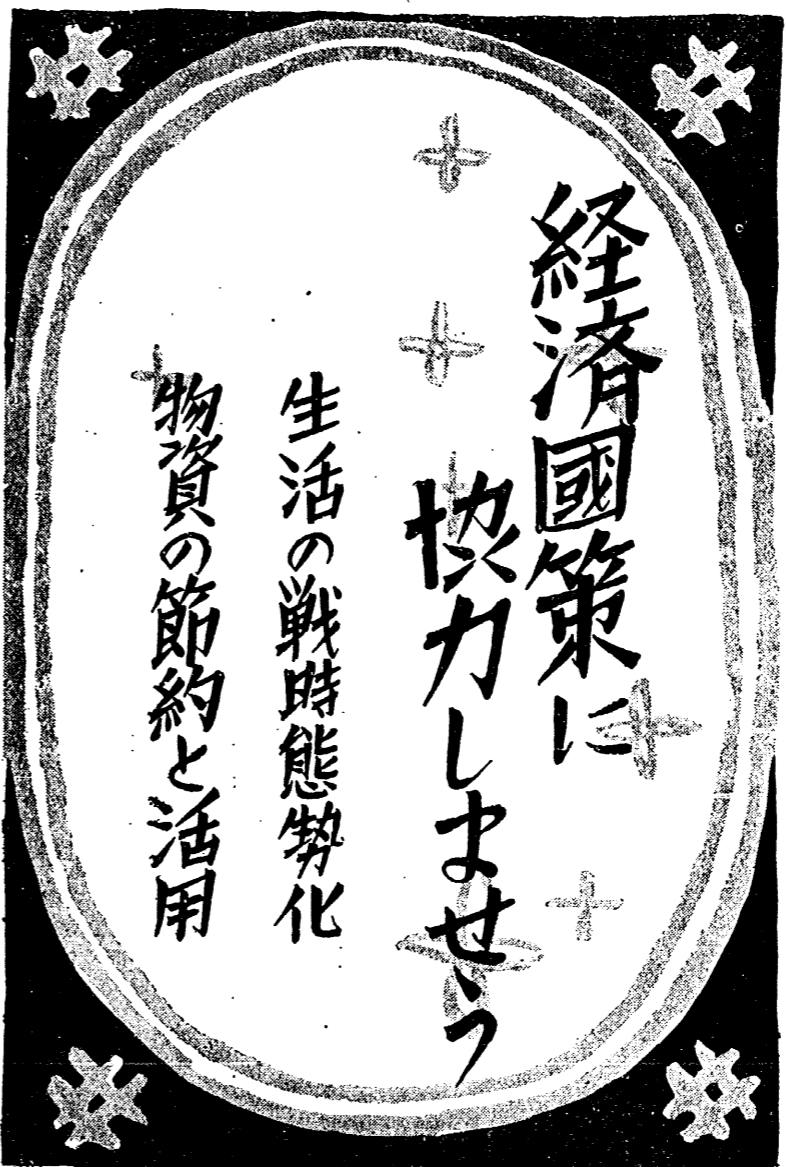 経済國策に
協力しませう
生活の戦時態勢化
物資の節約と活用